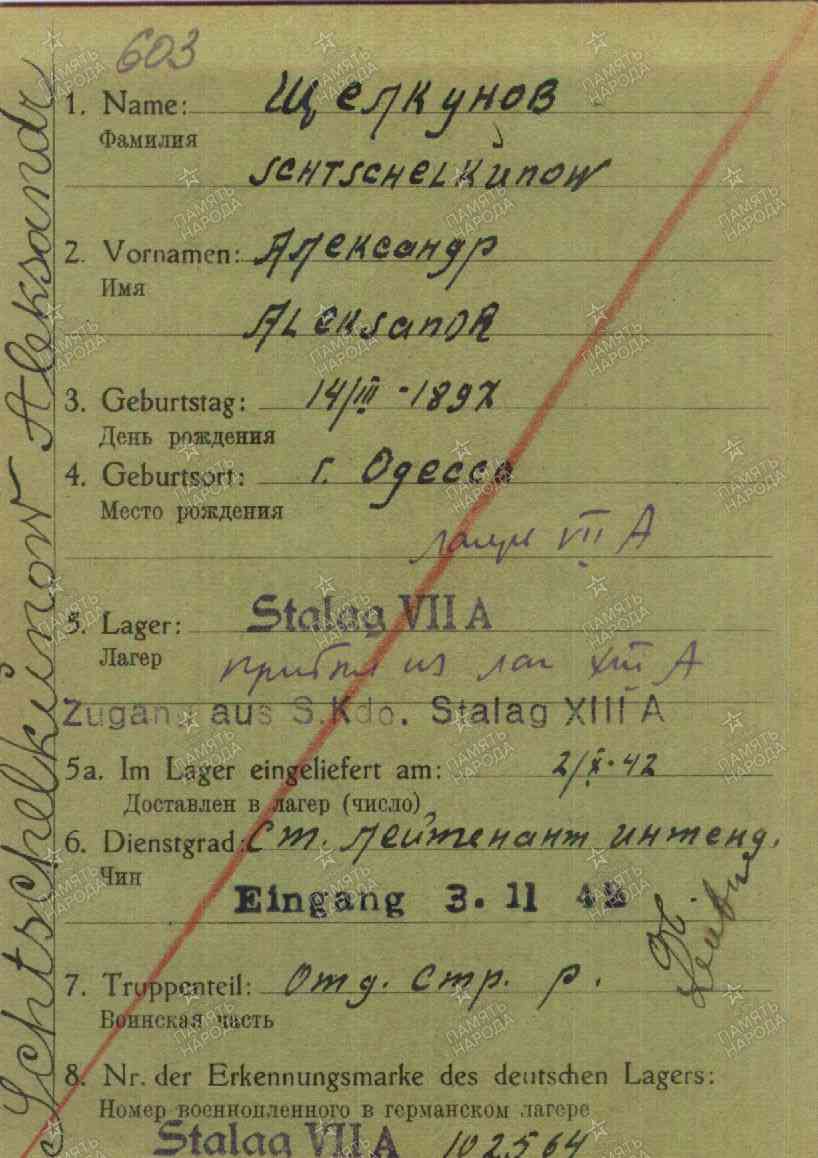 603
1. Name: Щелкунов
Фамилия
SCHTSCHELKŬNOW
2. Vornamen: Александр
Имя
ALEKSANDR
3. Geburtstag: 14/III - 1897
День рождения
4. Geburtsort: г. Одесса
Место рождения
лагерь VII A
5. Lager: Stalag VII A
Лагер прибыл из лаг XIII A
Zugang aus S.Kdo. Stalag XIII A
5a. Im Lager eingeliefert am: 2/X-42
Доставлен в лагер (число)
6. Dienstgrad: Ст. лейтенант интенд.
Чин
Eingang 3. 11 42
7. Truppenteil: Отд. стр. р.
Воинская часть
8. Nr. der Erkennungsmarke des deutschen Lagers:
Номер военнопленного в германском лагере
Stalag VII A 102564
Schtschelkŭnow Aleksandr
ПАМЯТЬ НАРОДА